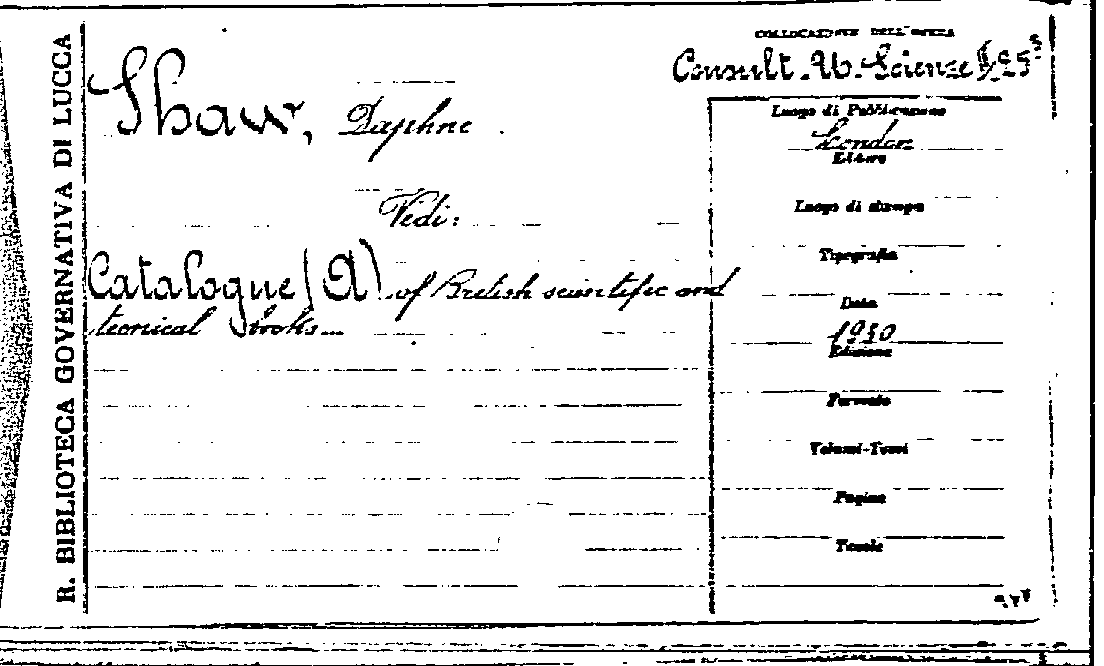 R. BIBLIOTECA GOVERNATIVA DI LUCCA
COLLOCAZIONE DELL'OPERA
Consult. Ub. Scienze
Shaw, Daphne
Vedi:
Catalogue (A) of British scientific and
tecnical books
Luogo di Pubblicazione
London
Editore
Luogo di stampa
Tipografia
Data
1950
Edizione
Formato
Volumi-Tomi
Pagine
Tavole